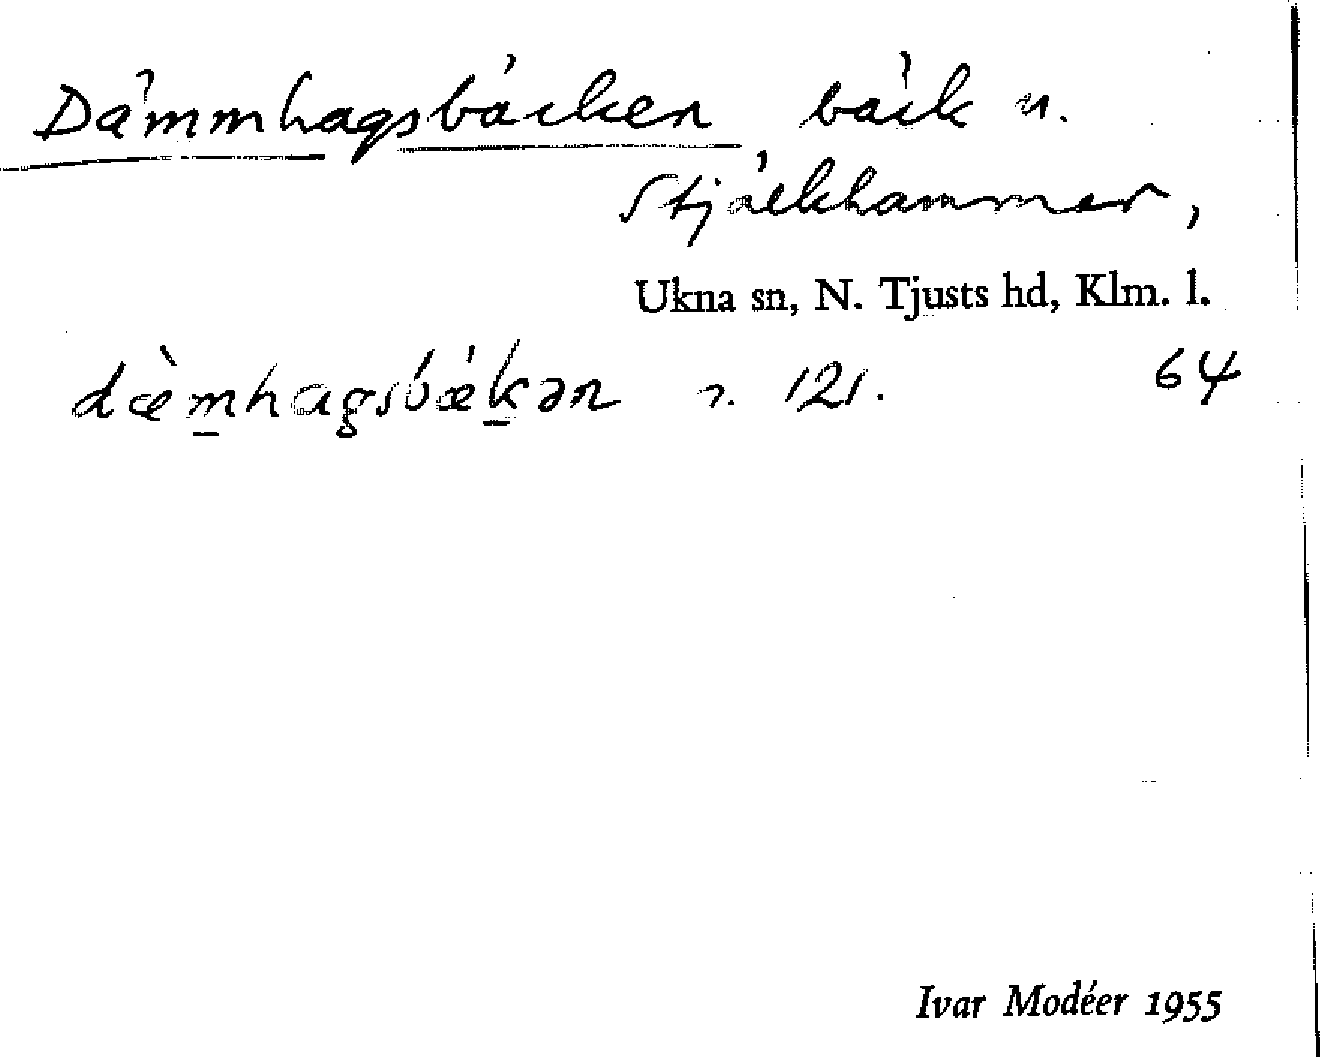 Dämmhagsbäcken bäck n.
Stjälkhammar,
Ukna sn, N. Tjusts hd, Klm. l.
dæ̀m̲hagsbǽk̲ən n. 121. 64
Ivar Modéer 1955